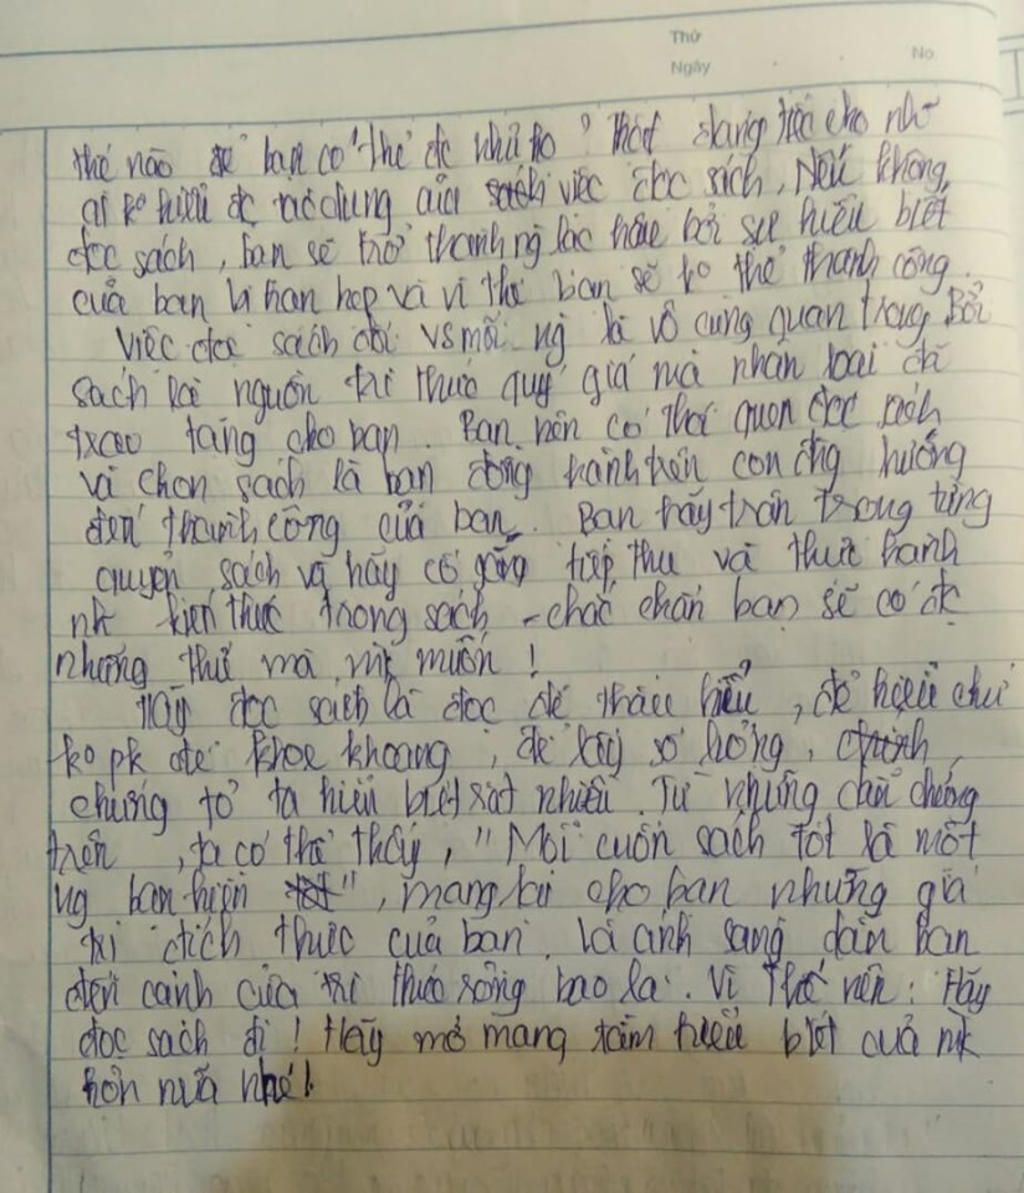 Thứ
Ngày
No
thế nào để bạn có thể đc như họ? Thật đáng trách cho những
ai ko hiểu đc tác dụng của việc đọc sách, Nếu không
đọc sách, bạn sẽ trở thành ng lạc hậu bởi sự hiểu biết
của bạn bị hạn hẹp và vì thế bạn sẽ ko thể thành công.
Việc đọc sách đối vs mỗi ng là vô cùng quan trọng. Bởi
sách là nguồn tri thức quý giá mà nhân loại đã
trao tặng cho bạn. Bạn nên có thói quen đọc sách
và chọn sách là bạn đồng hành trên con đng hướng
đến thành công của bạn. Bạn hãy trân trọng từng
quyển sách và hãy cố gắng tiếp thu và thực hành
kiến thức trong sách chắc chắn bạn sẽ có đc
những thứ mà mk muốn!
Hãy đọc sách là đọc để thấu hiểu, để hiểu chứ
ko pk để khoe khoang, để lấy số lượng,
chứng tỏ ta hiểu biết rất nhiều. Từ những dẫn chứng
trên, ta có thể thấy, "Mỗi cuốn sách tốt là một
ng bạn hiền", mang lại cho bạn những giá
trị đích thực của bạn. là ánh sáng dẫn bạn
đến cánh cửa tri thức rộng bao la. Vì thế nên: Hãy
đọc sách đi! Hãy mở mang tầm hiểu biết của mk
hơn nữa nhé!